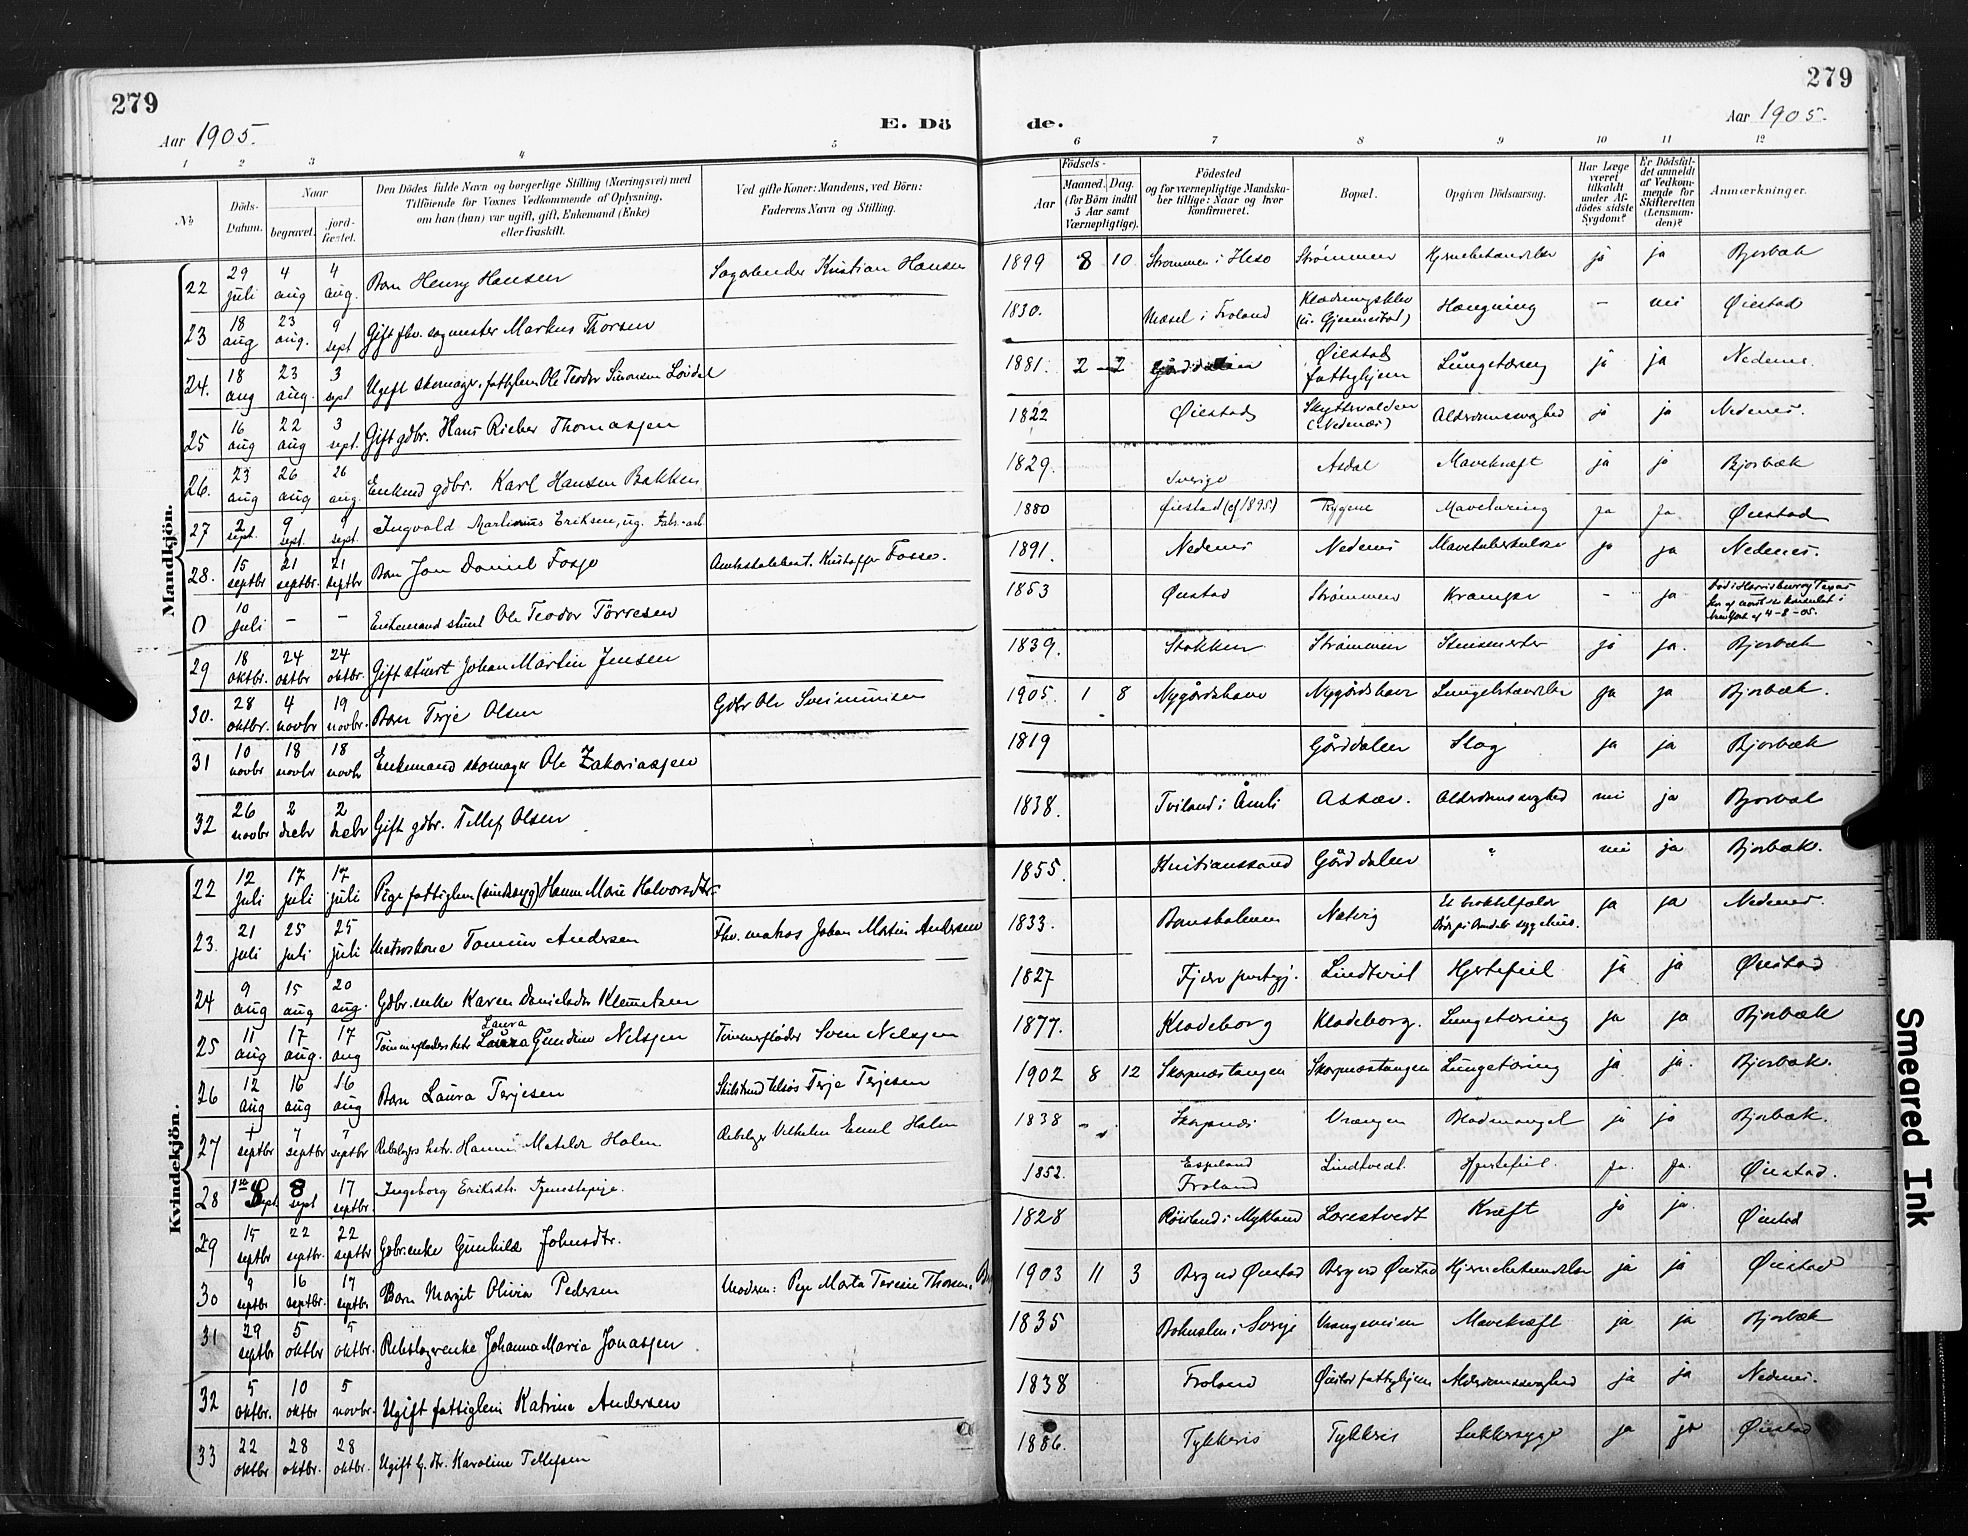 279
279
Aar 1905.
E. Dö
de.
Aar 1905.
1 2 3 4 5 6 7 8 9 10 11 12
No
Döds-Datum.
Naar
begravet.
jord-fæstet.
Den Dödes fulde Navn og borgerlige Stilling (Næringsvei) med
Tilföiende for Voxnes Vedkommende af Oplysning,
om han (hun) var ugift, gift, Enkemand (Enke)
eller fraskilt.
Ved gifte Koner: Mandens, ved Börn:
Faderens Navn og Stilling.
Födsels-
Aar
Maaned. Dag.
(for Börn indtil
5 Aar samt
Værnepligtige).
Födested
og for værnepligtige Mandska-
ber tillige: Naar og hvor
konfirmeret.
Bopæl.
Opgiven Dödsaarsag.
Har Læge
været
tilkaldt
under Af-
dödes sidste
Sygdom?
Er Dödsfal-
det anmeldt
af Vedkom-
mende for
Skifteretten
(Lensman-
den)?
Anmærkninger.
Mandkjön.
22 29 juli 4 aug 4 aug. Barn Henry Hansen Kristian Hansen 1899 8 10 Strømmen i Hisø Strømmen Hjernebetændelse ja ja Bjorbæk
23 18 aug 23 aug. 9 sept Gift fhv. sagmester Markus Thorsen 1830. Mæsel i Froland Hængning — nei Øiestad
24. 18 aug 23 aug. 3 sept Ugift skomager, fattiglem Ole Teodor Simonsen 1881. 2 2 Øiestad fattighjem Lungetæring ja ja Nedenes
25 16 aug 22 aug 3 sept. Gift gdbr. Hans Rieber Thomasjen 1822 Øiestad (Nedenæs) Alderdomssvaghed ja ja Nedenes.
26. 23 aug 26 aug 26 aug. Enkemd gdbr. Karl Hansen Bakken 1829. Sverige Asdal Mavekræft ja ja Bjorbæk
27 2 sept. 9 sept. 9 sept. Ingvald Martinius Eriksen, ug. Fabr.-arb 1880 Øiestad (cf 1895.) Rygene Mavetæring ja ja Øiestad
28. 15 septbr 21 septbr. 21 septbr Barn Jon Daniel Fosse Kristoffer Fosse. 1891. Nedenes Nedenes Mavetuberkulose ja ja Nedenes.
0 10 juli — — Enkemand stuert Ole Teodor Törresen 1853 Øiestad Strømmen Krampe — ja død i Harrisburg Texas
New York af 4-8-05.
29 18 oktbr. 24 oktbr 24 oktbr. Gift stuert Johan Martin Jensen 1839. Stokken Strømmen ja ja. Bjorbæk
30. 28 oktbr. 4 novbr 19 novbr. Barn Terje Olsen Gdbr Ole 1905. 1 8 Nygårdshave Nygårdshave Lungebetændelse ja ja Bjorbæk.
31 10 novbr 18 novbr 18 novbr Enkemand skomager Ole Zakariasjen 1819 Gårddalen Slag ja ja Bjorbæk
32 26 novbr 2 decbr 2 decbr Gift gdbr. Tellef Olsen 1838. i Åmli Alderdomssvaghed nei ja Bjorbæk
Kvindekjön.
22 12 juli 17 juli 17 juli Pige fattiglem (sindssyg) Hanne Marie Halvorsdtr. 1855. Kristianssand Gårddalen nei ja Bjorbæk.
23. 21 juli 25 juli 25 juli Matroskone Tomine Andersen Fhv. matros Johan Martin Andersen 1833. Natvig Et uroktilfælde Døde på Arendals sygehus. ja ja Nedenes.
24 9 aug 15 aug 20 aug. Gdbr. enke Karen Danielsdtr Klemetsen 1827 Lindtveit Hjertefeil ja ja Øiestad
Laura
25 11 aug 17 aug. 17 aug Tømmerfløders hstr. Laura Gundine Nelsjen Tømmerfløder Sven Nelsjen 1877. Kladeborg Kladeborg. Lungetæring ja ja Bjorbæk
26 12 aug 16 aug 16 aug Barn Laura Terjesen Terje Terjesen 1902 8 12 Skarpnæstangen Skarpnæstangen Lungetæring ja ja. Bjorbæk.
27 septbr 7 septbr 7 septbr Rebslagers hstr. Hanne Matilde Holm Rebslager Vilhelm Emil Holm 1838 Skarpnæs Vrængen Blodmangel ja ja Bjorbæk.
28 sept. 8 sept 17 septbr. Ingeborg Eriksdtr. Tjenestepige. 1852. Espeland Froland Lindtvedt. Hjertefeil. ja. ja. Øiestad.
29 15 septbr 22 septbr. 22 septbr Gdbr. enke Gunhild Johnsdtr. 1828 i Mykland Lorestvedt Kræft ja ja. Øiestad
30 9 septbr 16 septbr. 17 septbr Barn Margit Olivia Pedersen Moderen: Pige Marta Teresie Thorsen, 1903 11 3 Berg ved Øiestad Berg ved Øiestad Hjernebetændelse ja ja Øiestad
31 29 septbr 5 oktbr 5 oktbr. Rebslagerenke Johanna Maria Jonasjen 1835 Bohuslen i Sverige Vrangeveien Mavekræft ja ja Bjorbæk
32 5 oktbr. 10 oktbr 5 novbr. Ugift fattiglem Katrine Andersen 1838 Froland Øiestad fattighjem Alderdomssvaghed ja ja Nedenes.
33 22 oktbr 28 oktbr. 28 oktbr. Ugift G. dtr. Karoline Tellefsen 1886. Tykkeris Tykkeris Sukkersyge ja ja Øiestad
Smeared Ink